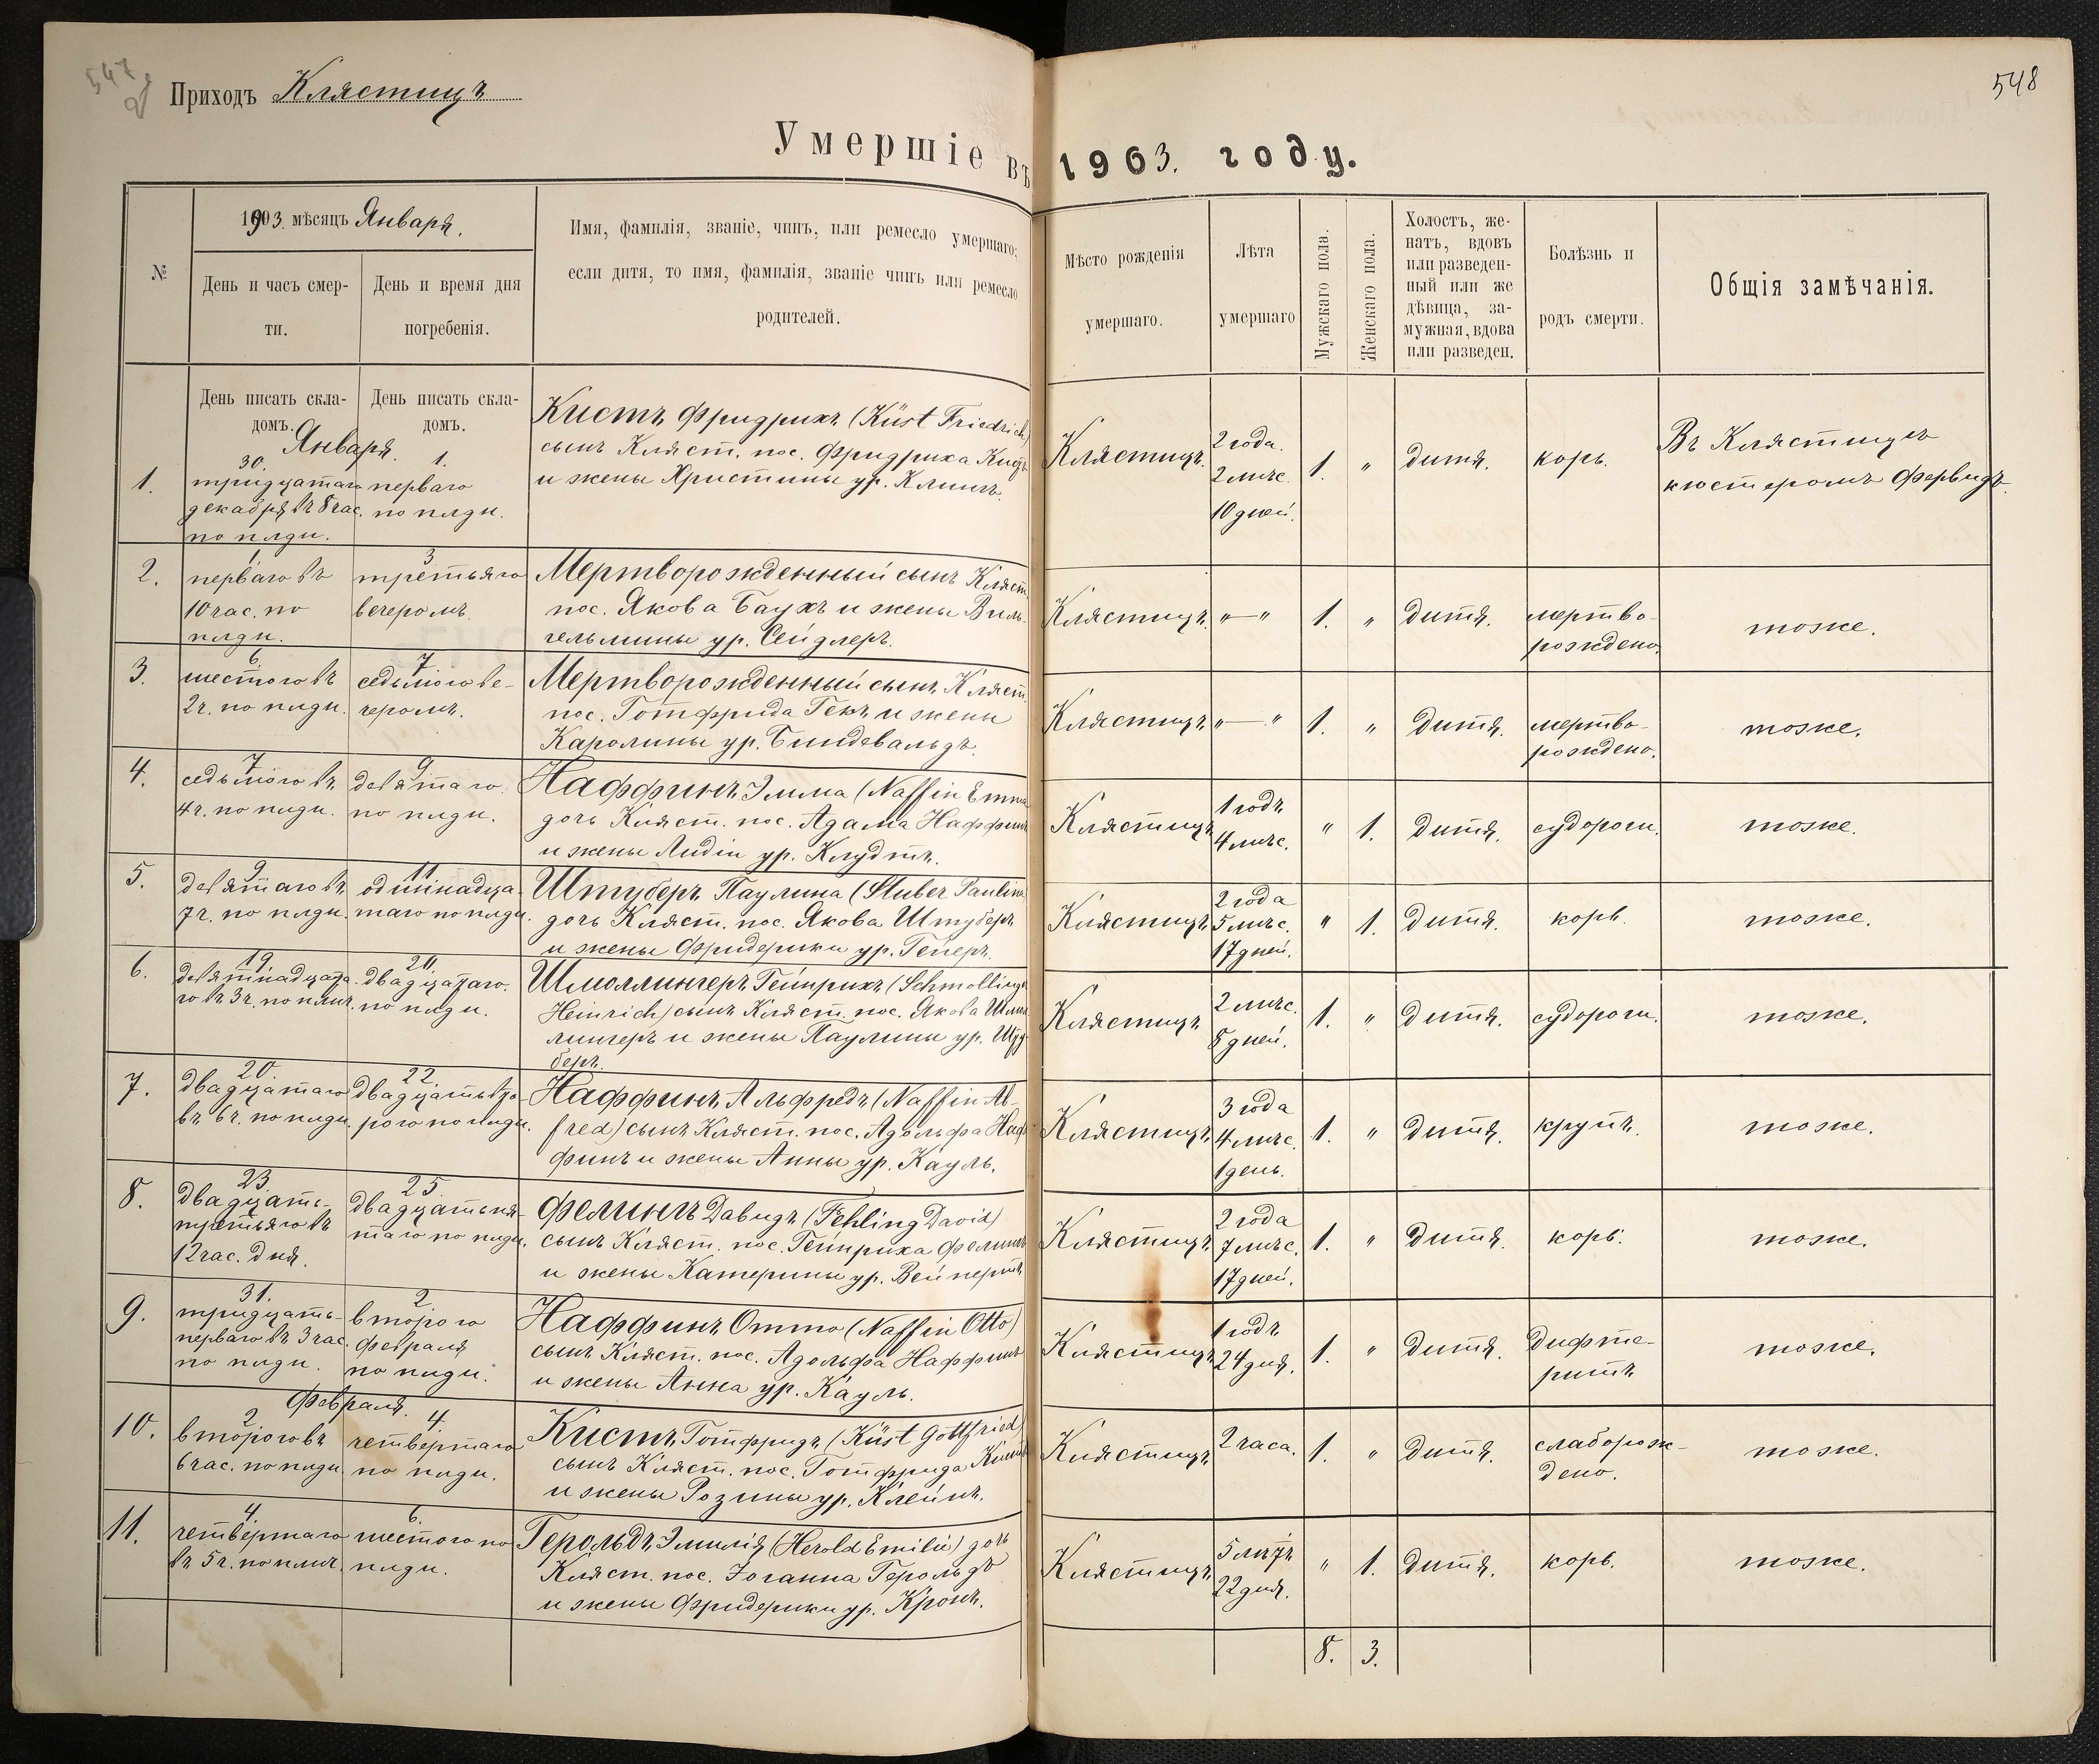 547
Приходъ Клястицъ
548
Умершіе въ 1903. году.
№
1903. мѣсяцъ Января.
День и часъ смерти.
День и время дня погребенія.
Имя, фамилія, званіе, чинъ, или ремесло умершаго;
если дитя, то имя, фамилія, званіе чинъ или ремесло
родителей.
Мѣсто рожденія
умершаго.
Лѣта
умершаго
Мужскаго пола.
Женскаго пола.
Холостъ, же-
натъ, вдовъ
или разведен-
ный или же
дѣвица, за-
мужная, вдова
или разведен.
Болѣзнь и
родъ смерти.
Общія замѣчанія.
День писать скла-
домъ.
День писать скла-
домъ.
Января.
1.
30.
тридцатаго
декабря въ 8 час.
по плдн.
1.
перваго
по плдн.
Кистъ Фридрихъ (Küst Friedrich)
сынъ Кляст. пос. Фридриха Кистъ
и жены Христины ур. Клинъ.
Клястицъ.
2 года.
2 мѣс.
10 дней.
1.
"
дитя.
корь.
Въ Клястицѣ
кюстеромъ
2.
1
перваго въ
10 час. по
плдн.
3
третьяго
вечеромъ.
Мертворожденный сынъ Кляст.
пос. Якова Баухъ и жены Виль-
гельмины ур. Сейдлеръ.
Клястицъ.
"—"
1.
"
дитя.
мертво-
рождено.
тоже.
3.
6.
шестого въ
2 ч. по плдн.
7
седьмого ве-
черомъ.
Мертворожденный сынъ Кляст.
пос. Готфрида Гекъ и жены
Каролины ур. Биндевальдъ.
Клястицъ.
"—"
1.
"
дитя.
мертво-
рождено.
тоже.
4.
7
седьмого въ
4 ч. по плдн.
9
девятаго
по плдн.
Наффинъ Эмма (Naffin Emma
дочь Кляст. пос. Адама Наффинъ
и жены Лидіи ур. Клудтъ.
Клястицъ
1 годъ
4 мѣс.
"
1.
дитя.
судороги.
тоже.
5.
9
девятаго въ
7 ч. по плдн.
11
одинадца-
таго по плдн.
Штуберъ Паулина (Stuber Paulina
дочь Кляст. пос. Якова Штуберъ
и жены Фридерики ур. Гейеръ.
Клястицъ
2 года
5 мѣс.
17 дней.
"
1.
дитя.
корь.
тоже.
6.
19
девятнадцата-
го въ 3 ч. по плнч.
20.
двадцатаго.
по плдн.
Шмоллингеръ Гейнрихъ (Schmollinger
Heinrich) сынъ Кляст. пос. Якова Шмол-
лингеръ и жены Паулины ур. Шту-
беръ.
Клястицъ
2 мѣс.
8 дней.
1.
"
дитя.
судороги.
тоже.
7.
20.
двадцатаго
въ 6 ч. по плдн.
22.
двадцатьвто-
рого по плдн.
Наффинъ Альфредъ (Naffin Al-
fred) сынъ Кляст. пос. Адольфа Наф-
финъ и жены Анны ур. Кауль.
Клястицъ
3 года
4 мѣс.
1 день.
1.
"
дитя.
крупъ.
тоже.
8.
23
двадцать-
третьяго въ
12 час. дня.
25.
двадцатьпя-
таго по плдн.
Фелингъ Давидъ (Fehling David)
сынъ Кляст. пос. Гейнриха Фелингъ
и жены Катерины ур. Вейпертъ
Клястицъ
2 года
7 мѣс.
17 дней.
1.
"
дитя.
корь.
тоже.
9.
31.
тридцать-
перваго въ 3 час.
по плдн.
2
второго
февраля
по плдн.
Наффинъ Отто (Naffin Otto)
сынъ Кляст. пос. Адольфа Наффинъ
и жены Анна ур. Кауль.
Клястицъ
1 годъ
24 дня.
1.
"
дитя.
дифте-
ритъ
тоже.
Февраля.
10.
2
второго въ
6 час. по плдн.
4.
четвертаго
по плдн.
Кистъ Готфридъ (Küst Gottfried)
сынъ Кляст. пос. Готфрида Кистъ
и жены Розины ур. Клейнъ.
Клястицъ
2 часа.
1.
"
дитя.
слаборож-
дено.
тоже.
11.
4.
четвертаго
въ 5 ч. по плнч.
6.
шестого по
плдн.
Герольдъ Эмилія (Herold Emilie) дочь
Кляст. пос. Іоганна Герольдъ
и жены Фридерики ур. Кронъ.
Клястицъ
5 лѣтъ
22 дня.
"
1.
дитя.
корь.
тоже.
8.
3.